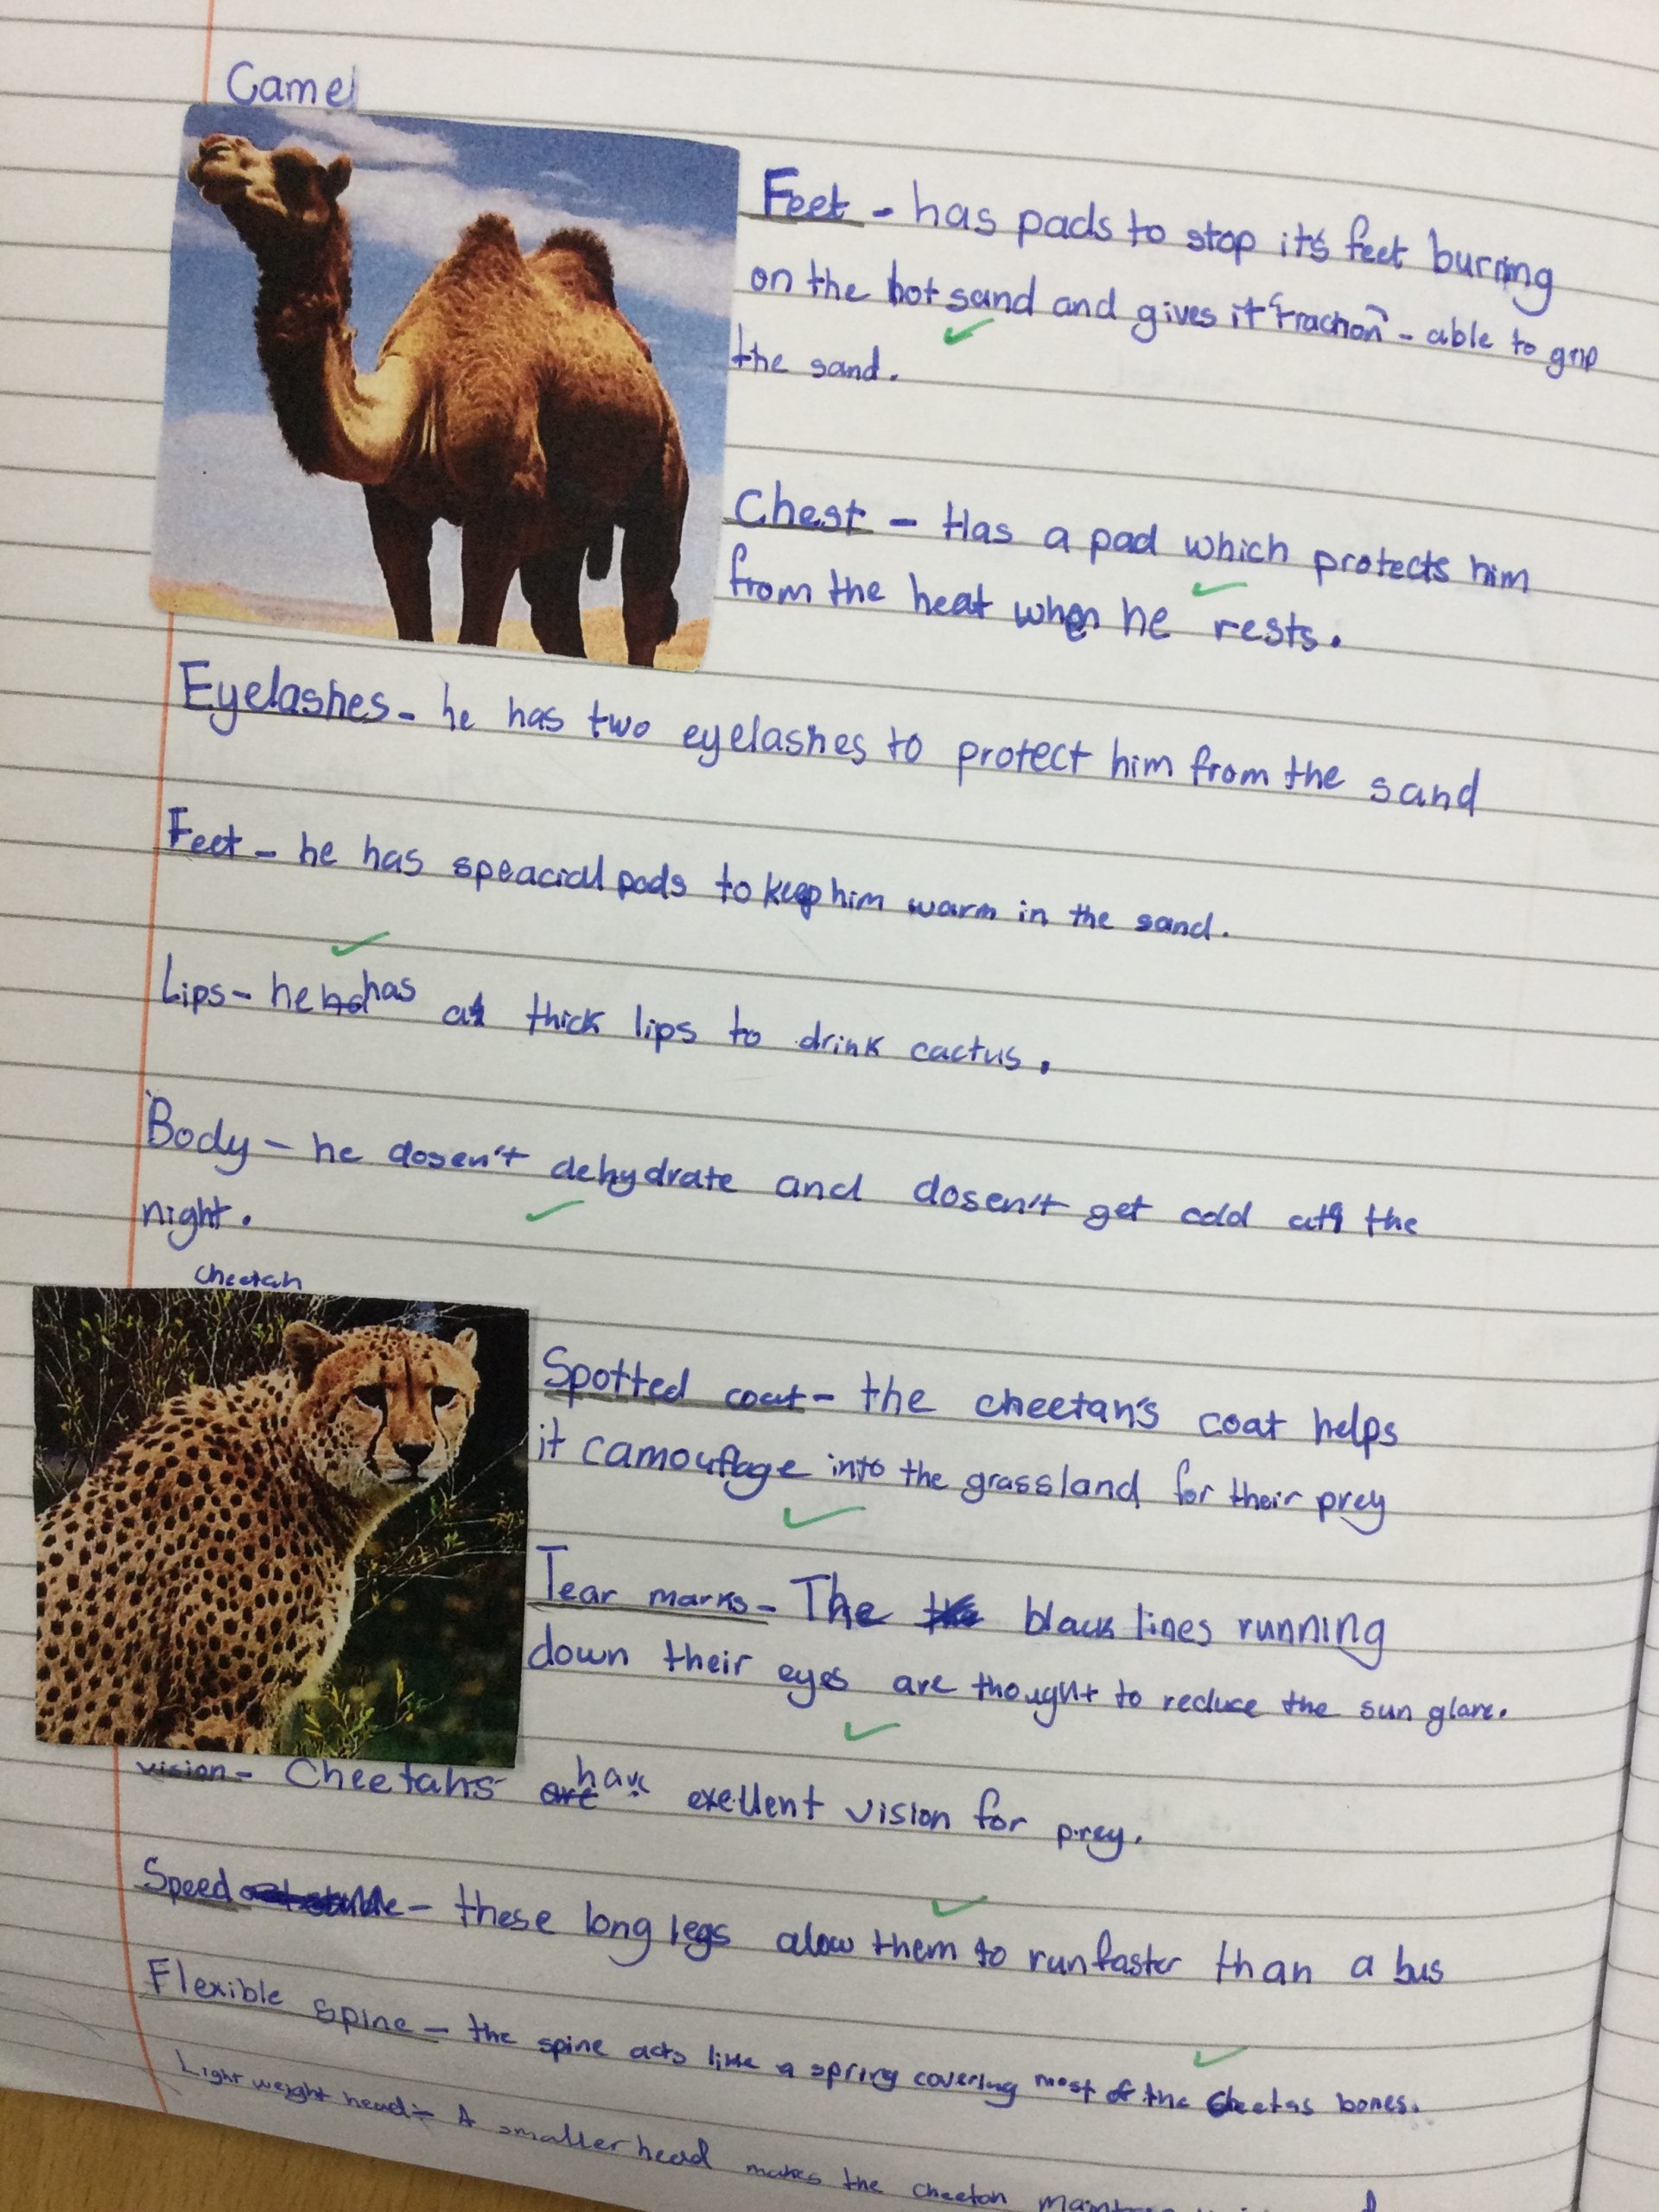 Camel
Feet - has pads to stop it's feet burning
on the hot sand and gives it "traction" - able to grip
the sand.
Chest - Has a pad which protects him
from the heat when he rests.
Eyelashes - he has two eyelashes to protect him from the sand
Feet - he has speacial pads to keep him warm in the sand.
Lips - he has a thick lips to drink cactus.
Body - he dosen't dehydrate and dosen't get cold at the
night.
Cheetah
Spotted coat - the cheetah's coat helps
it camouflage into the grassland for their prey
Tear marks - The black lines running
down their eyes are thought to reduce the sun glare.
vision - Cheetahs have exellent vision for prey.
Speed - these long legs alow them to run faster than a bus
Flexible spine - the spine acts like a spring covering most of the cheetas bones.
Light weight head - A smaller head makes the cheetah